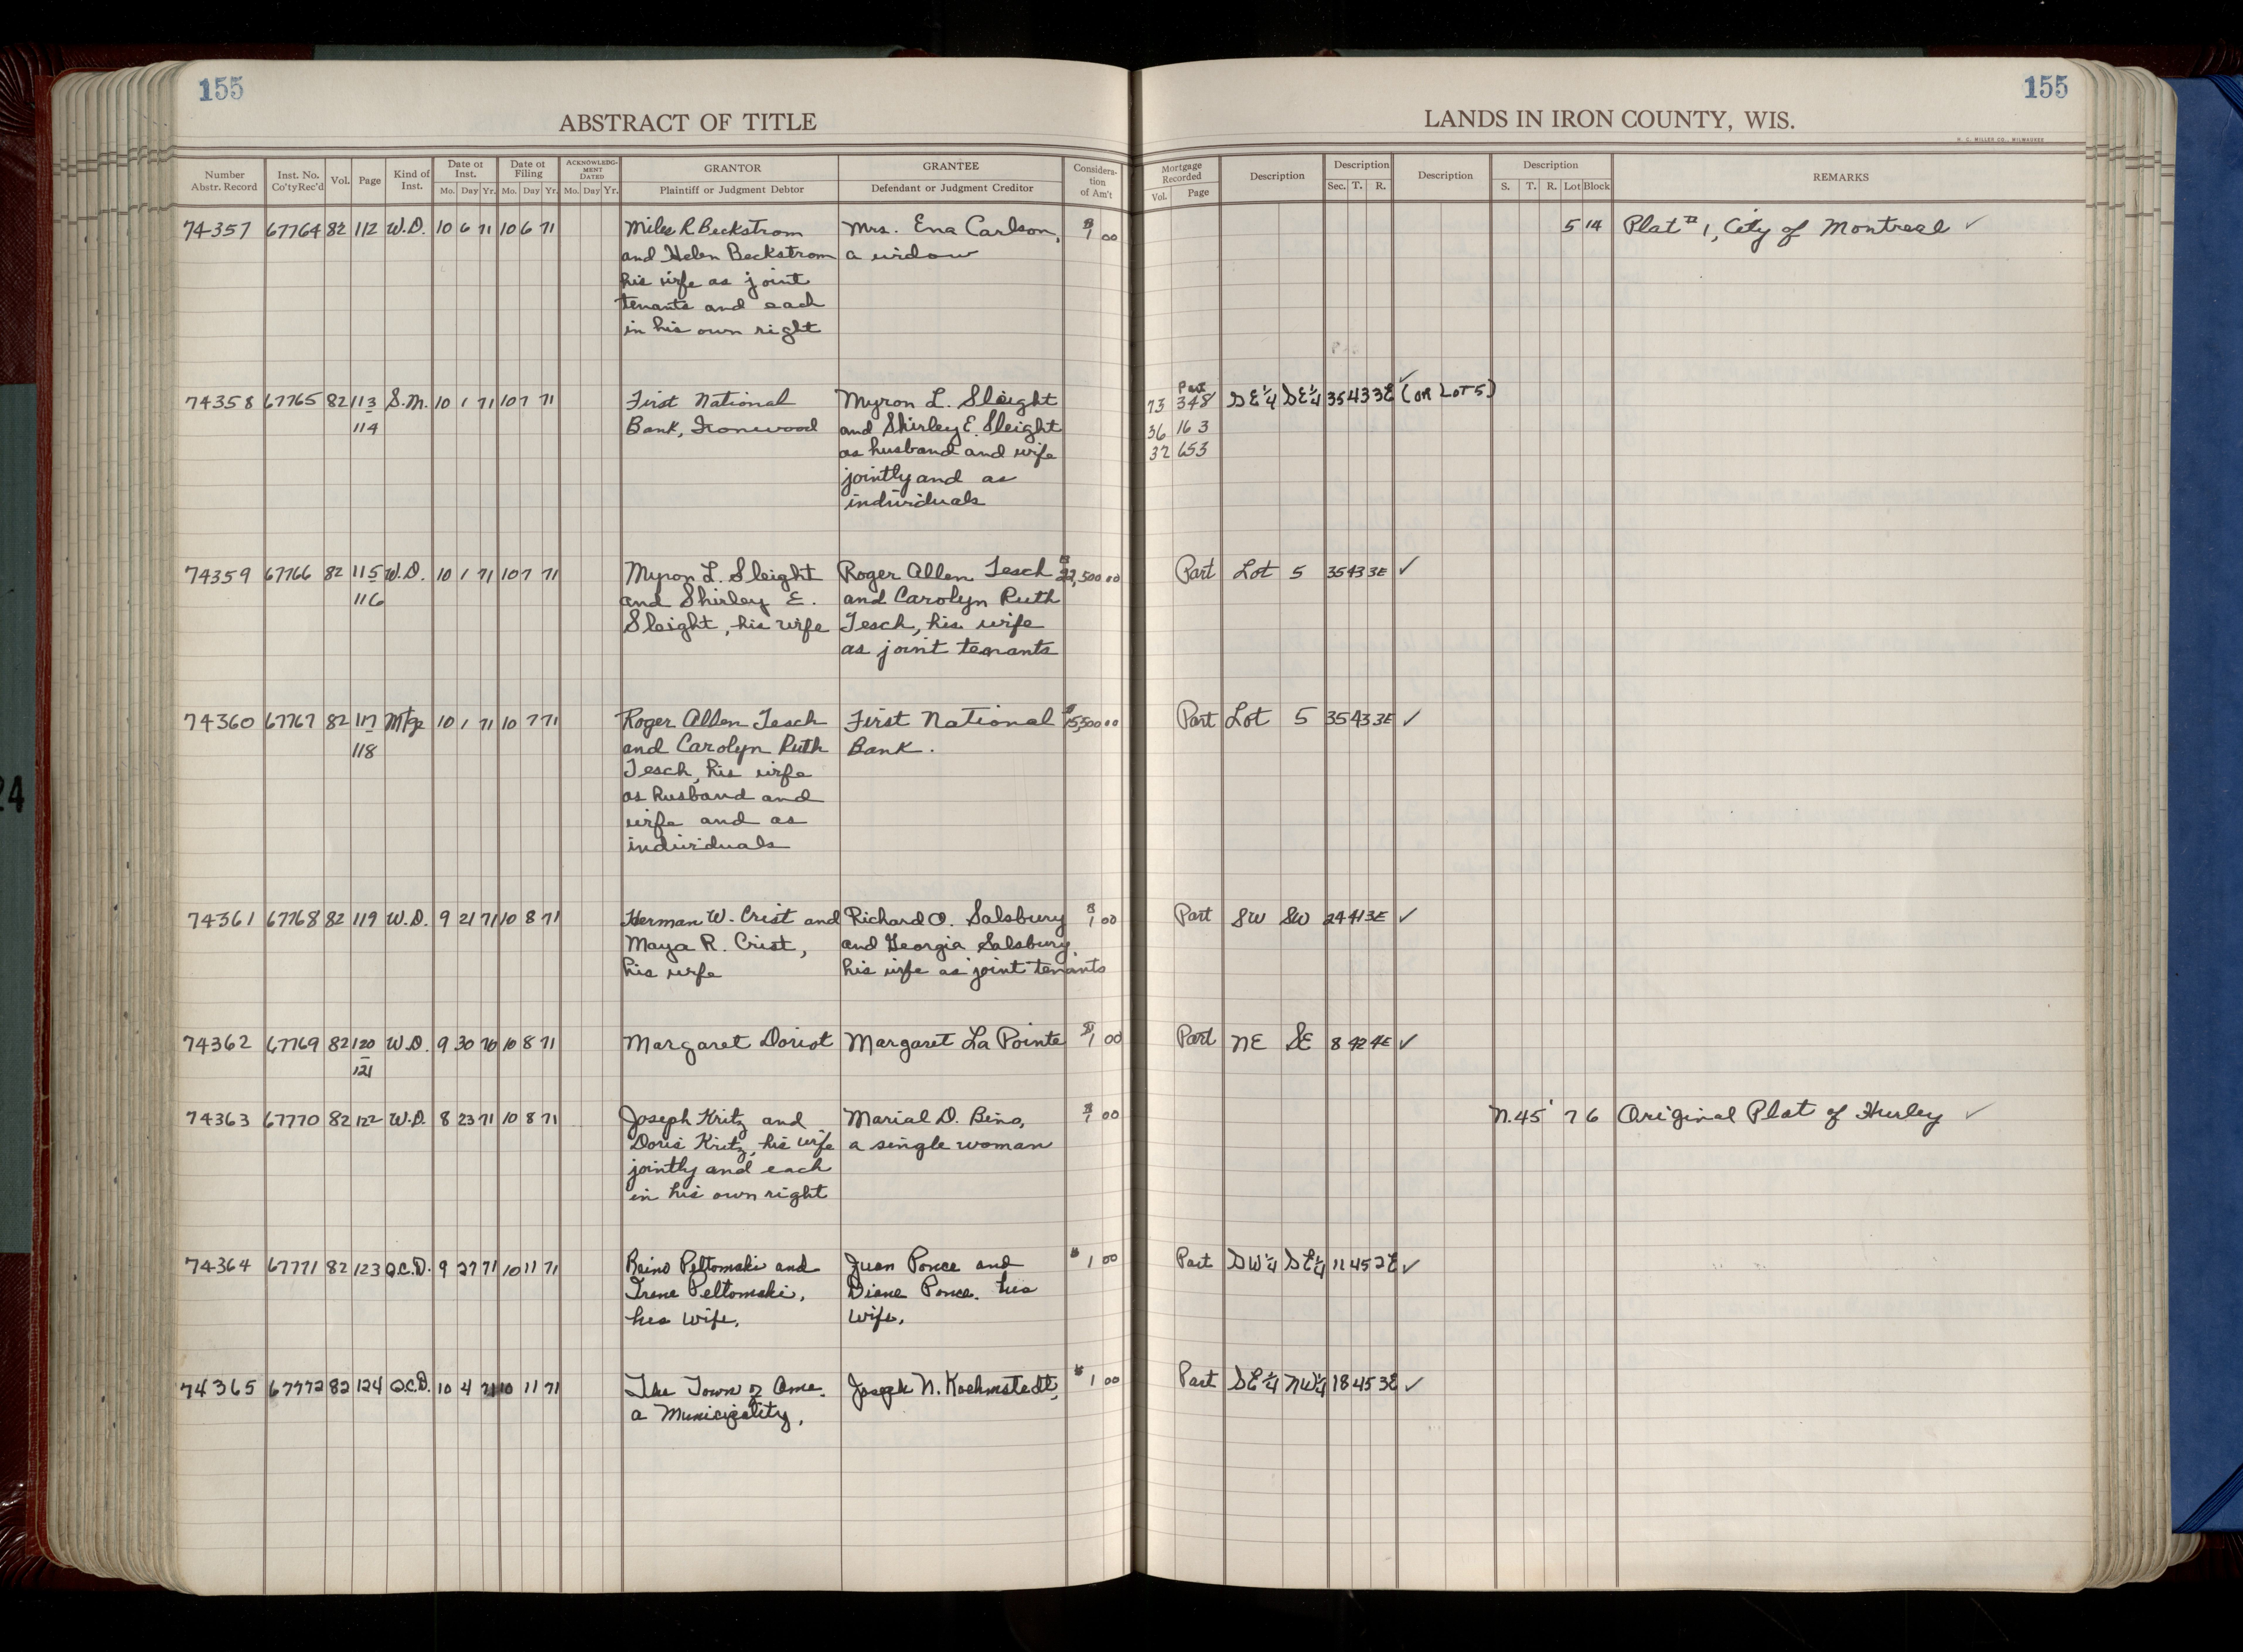 155
155
ABSTRACT OF TITLE
LANDS IN IRON COUNTY, WIS.
H. C. MILLER CO., MILWAUKEE
Number Abstr. Record | Inst. No. Co'ty Rec'd | Vol. | Page | Kind of Inst. | Date of Inst. Mo. Day Yr. | Date of Filing Mo. Day Yr. | ACKNOWLEDGMENT DATED Mo. Day Yr. | GRANTOR Plaintiff or Judgment Debtor | GRANTEE Defendant or Judgment Creditor | Consideration of Am't | Mortgage Recorded Vol. Page | Description | Description Sec. T. R. | Description | Description S. T. R. Lot Block | REMARKS
74357 67764 82 112 W.D. 10 6 71 10 6 71 Miles R Beckstrom Mrs. Ena Carlson, $1 00 5 14 Plat # 1, City of Montreal ✓
and Helen Beckstrom a widow
his wife as joint
tenants and each
in his own right
Part
74358 67765 82 113 S.M. 10 1 71 10 7 71 First National Myron L. Sleight 73 348 SE¼ SE¼ 35 43 3E ✓ (OR LOT 5)
114 Bank, Ironwood and Shirley E. Sleight 36 163
as husband and wife 32 653
jointly and as
individuals
74359 67766 82 115 W.D. 10 1 71 10 7 71 Myron L. Sleight Roger Allen Tesch $22,500 00 Part Lot 5 35 43 3E ✓
116 and Shirley E. and Carolyn Ruth
Sleight, his wife Tesch, his wife
as joint tenants
74360 67767 82 117 Mtge 10 1 71 10 7 71 Roger Allen Tesch First National $15,500 00 Part Lot 5 35 43 3E ✓
118 and Carolyn Ruth Bank.
Tesch, his wife
as husband and
wife and as
individuals
74361 67768 82 119 W.D. 9 21 71 10 8 71 Herman W. Crist and Richard O. Salsbury $1 00 Part SW SW 24 41 3E ✓
Maya R. Crist, and Georgia Salsbury
his wife his wife as joint tenants
74362 67769 82 120 W.D. 9 30 70 10 8 71 Margaret Doriot Margaret La Pointe $1 00 Part NE SE 8 42 4E ✓
121
74363 67770 82 122 W.D. 8 23 71 10 8 71 Joseph Kritz and Marial D. Bino, $1 00 N.45' 7 6 Original Plat of Hurley ✓
Doris Kritz, his wife a single woman
jointly and each
in his own right
74364 67771 82 123 Q.C.D. 9 27 71 10 11 71 Reino Peltomaki and Juan Ponce and $1 00 Part SW¼ SE¼ 11 45 2E ✓
Irene Peltomaki, Diane Ponce, his
his wife, wife,
74365 67772 82 124 Q.C.D. 10 4 71 10 11 71 The Town of Joseph N. Koehmstedt, $1 00 Part SE¼ NW¼ 18 45 3E ✓
a Municipality,
24